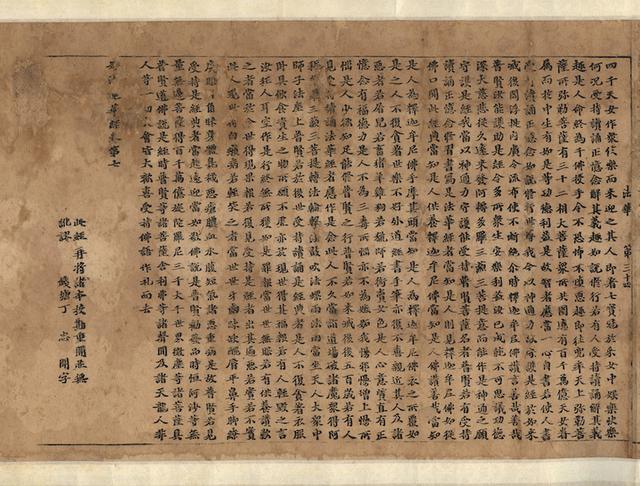 法華 第三十五
四千天女作衆伎樂而來迎之其人即著七寶冠於采女中娛樂快樂
何況受持讀誦正憶念解其義趣如說修行若有人受持讀誦解其義
趣是人命終為千佛授手令不恐怖不墮惡趣即往兜率天上彌勒菩
薩所彌勒菩薩有三十二相大菩薩衆所共圍遶有百千萬億天女眷
屬而於中生有如是等功德利益是故智者應當一心自書若使人書
受持讀誦正憶念如說修行世尊我今以神通力故守護是經於如來
滅後閻浮提內廣令流布使不斷絕爾時釋迦牟尼佛讚言善哉善哉
普賢汝能護助是經令多所衆生安樂利益汝已成就不可思議功德
深大慈悲從久遠來發阿耨多羅三藐三菩提意而能作是神通之願
守護是經我當以神通力守護能受持普賢菩薩名者普賢若有受持
讀誦正憶念修習書寫是法華經者當知是人則見釋迦牟尼佛如從
佛口聞此經典當知是人供養釋迦牟尼佛當知是人佛讚善哉當知
是人為釋迦牟尼佛手摩其頭當知是人為釋迦牟尼佛衣之所覆如
是之人不復貪著世樂不好外道經書手筆亦復不喜親近其人及諸
惡者若屠兒若畜猪羊雞狗若獵師若衒賣女色是人心意質直有正
憶念有福德力是人不為三毒所惱亦不為嫉妬我慢邪慢增上慢所
惱是人少欲知足能修普賢之行普賢若如來滅後後五百歲若有人
見受持讀誦法華經者應作是念此人不久當詣道場破諸魔衆得阿
耨多羅三藐三菩提轉法輪擊法鼓吹法螺雨法雨當坐天人大衆中
師子法座上普賢若於後世受持讀誦是經典者是人不復貪著衣服
臥具飲食資生之物所願不虛亦於現世得其福報若有人輕毀之言
汝狂人耳空作是行終無所獲如是罪報當世世無眼若有供養讚歎
之者當於今世得現果報若復見受持是經者出其過惡若實若不實
此人現世得白癩病若輕笑之者當世世牙齒疎缺醜脣平鼻手脚繚
戾眼目角睞身體臭穢惡瘡膿血水腹短氣諸惡重病是故普賢若見
受持是經典者當起遠迎當如敬佛說是普賢勸發品時恒河沙等無
量無邊菩薩得百千萬億旋陀羅尼三千大千世界微塵等諸菩薩具
普賢道佛說是經時普賢等諸菩薩舍利弗等諸聲聞及諸天龍人非
人等一切大會皆大歡喜受持佛語作禮而去
妙法蓮華經卷第七
此經一再將諸本校勘重開並無
訛謬 錢塘丁 忠 開字